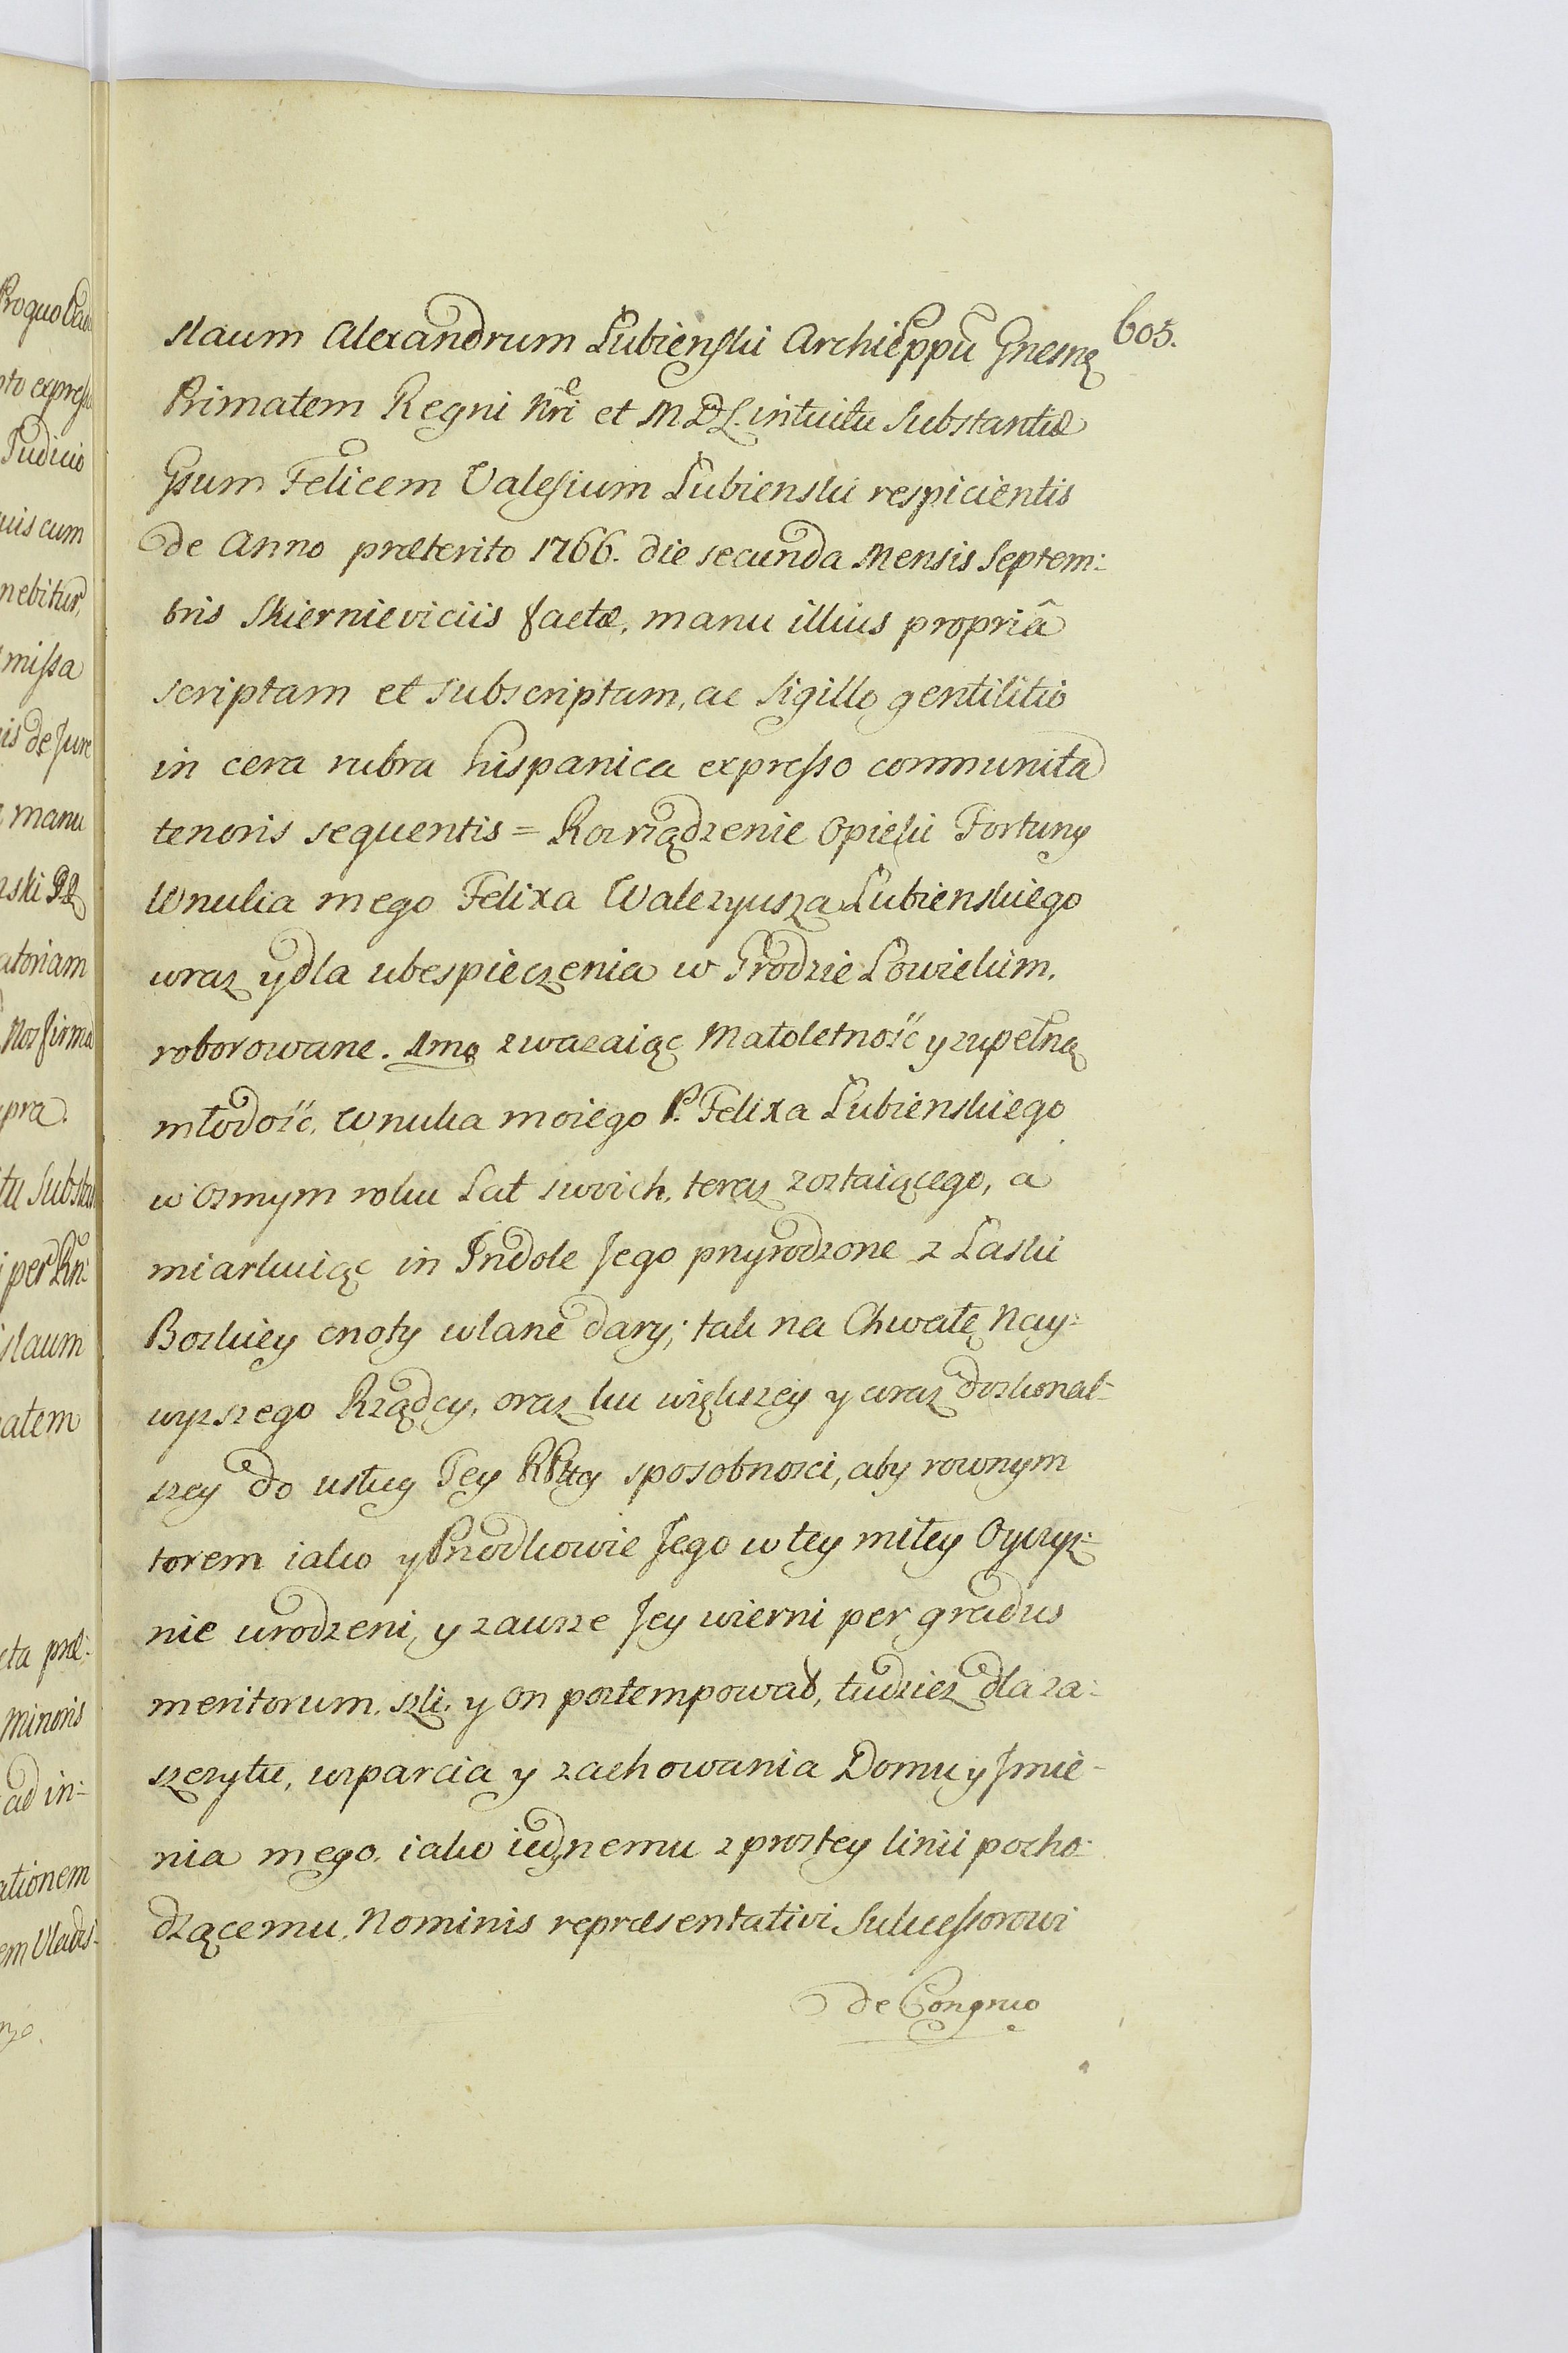 605.
slaum Alexandrum Łubienski Archieppũ Gnesnę
Primatem Regni Nri et M D L. intuitu Substantiæ
Gsum Felicem Valesium Łubienski respicientis
de Anno præterito 1766. die secunda Mensis Septem:
bris Skierniewiciis factæ, manu illius propriâ
scriptam et subscriptam, ac Sigillo gentilitio
in cera rubra hispanica expresso communita
tenoris sequentis = Rozrządzenie Opieki Fortuny
Wnuka mego Felixa Waleryusza Łubienskiego
wraz y dla ubespieczenia w Grodzie Łowickim.
roborowane. 1mo zwazaiąc Małoletność y zupełną
młodość, Wnuka moiego P. Felixa Łubienskiego
w osmym roku Lat swoich, teraz zostaiącego, a
miarkuiąc in Indole Jego przyrodzone z Łaski
Boskiey cnoty wlane dary; tak na Chwałę Nay:
wyzszego Rządcy, oraz ku większey y wraz doskonal-
szey do usług Tey RPltey sposobnosci, aby rownym
torem iako y Przodkowie Jego w tey miłey Oyczyz:
nie urodzeni, y zawsze Jey wierni per gradus
meritorum. szli, y On postempował, tudziez dla za:
szczytu, wsparcia y zachowania Domu y Jmie-
nia mego. iako iednemu z prostey linii pocho:
dzącemu, Nominis repræsentativi Sukcessorowi
de Congruo